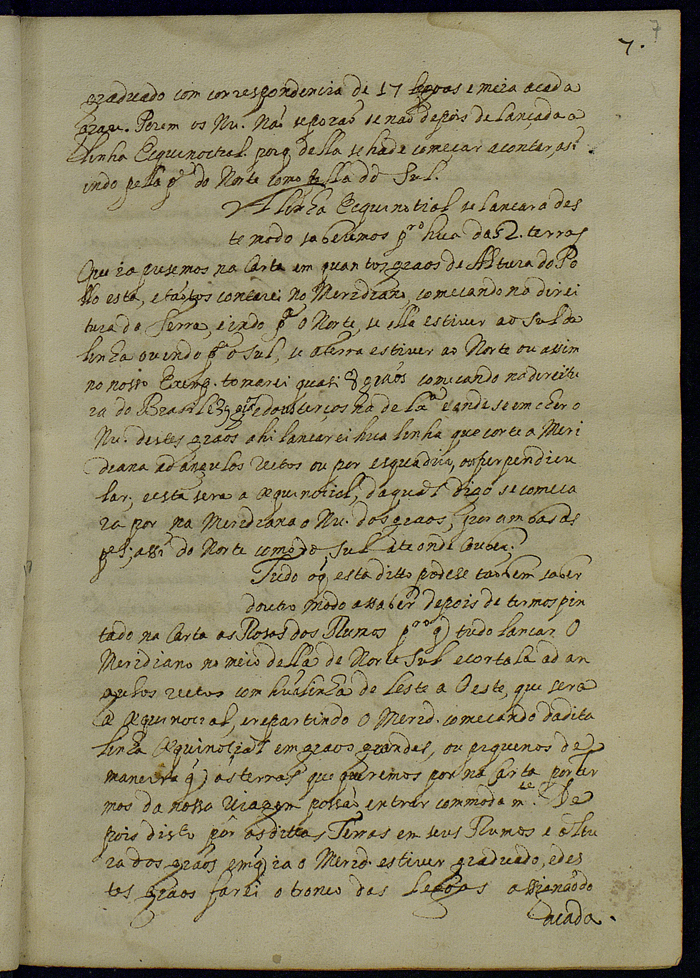 7.
7
graduado com correspondencia de 17 legoas e meia a cada
grau. Porem os Nu. Não se porão se não depois de lançada a
linha Æquinoctial. porq̃ della se ha de começar a contar asi
indo pella p.te do Norte como pella do Sul.
A linha Æquinotial se lancara des
te modo saberemos pr.o hua das 2. terras
Que ia pusemos na Carta em quantos graos de Altura do Po
llo està, e tãtos contarei no Meridiano, comecando no direi
tura da Terra, e indo p.a o Norte, se ella estiver ao Sul da
linha ou indo p.a o Sul, se a terra estiver ao Norte ou assim
no nosso Exemp. tomarei quasi 8 graos comecando na direitu
ra do Brasil e 39 e dous terços na de La e onde se encher o
Nu. destes graos ahi lancarei hua linha que corte a Meri
deana ad angulos rectos ou por esquadria, ou perpendicu
lar; e esta sera a æquinotial, da qual digo se comeca
ra por na Meridiana o Nu. dos graos, por ambas as
p.tes, assi do Norte como do Sul ate onde couber.
Tudo o q̃ està ditto podese tambem saber
doutro modo a saber depois de termos pin
tado na Carta as Rosas dos Rumos pr.o q̃ tudo lancar O
Meridiano no meio della de Norte Sul e cortala ad an
gulos rectos com hua linha de Leste a Oeste, que sera
a Æquinocial, e repartindo O Merid. comecando da dita
linha Æquinocial em graos grandes, ou piquenos de
maneira q̃ as terras que queremos por na Carta por ter
mos da nossa Viagem possão entrar commodam.te. De
pois disto pôr as dittas Terras em seus Rumos e altu
ra dos graos em q̃ ia o Merid. estiver graduado, e des
tes graos farei o tronco das Legoas assinando
acada.